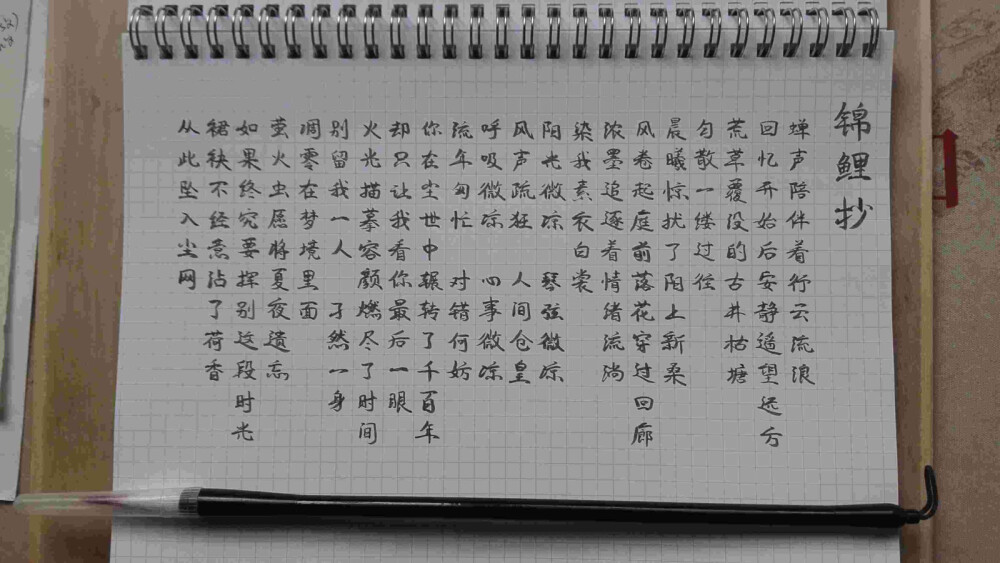 锦鲤抄
蝉声陪伴着行云流浪
回忆开始后安静遥望远方
荒草覆没的古井枯塘
匀散一缕过往
晨曦惊扰了陌上新桑
风卷起庭前落花穿过回廊
浓墨追逐着情绪流淌
染我素衣白裳
阳光微凉 琴弦微凉
风声疏狂 人间仓皇
呼吸微凉 心事微凉
流年匆忙 对错何妨
你在尘世中辗转了千百年
却只让我看你最后一眼
火光描摹容颜燃尽了时间
别留我一人 孑然一身
凋零在梦境里面
萤火虫愿将夏夜遗忘
如果终究要挥别这段时光
裙袂不经意沾了荷香
从此坠入尘网